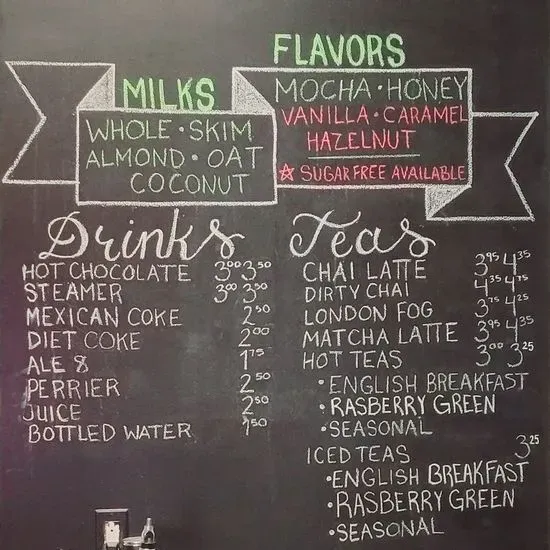 MILKS
WHOLE · SKIM
ALMOND · OAT
COCONUT
FLAVORS
MOCHA · HONEY
VANILLA · CARAMEL
HAZELNUT
☆ SUGAR FREE AVAILABLE
Drinks
HOT CHOCOLATE 3⁰⁰ 3⁵⁰
STEAMER 3⁰⁰ 3⁵⁰
MEXICAN COKE 2⁵⁰
DIET COKE 2⁰⁰
ALE 8 1⁷⁵
PERRIER 2⁵⁰
JUICE 2⁵⁰
BOTTLED WATER 1⁵⁰
Teas
CHAI LATTE 3⁹⁵ 4³⁵
DIRTY CHAI 4³⁵ 4⁷⁵
LONDON FOG 3⁷⁵ 4²⁵
MATCHA LATTE 3⁹⁵ 4³⁵
HOT TEAS 3⁰⁰ 3²⁵
· ENGLISH BREAKFAST
· RASBERRY GREEN
· SEASONAL
ICED TEAS 3²⁵
· ENGLISH BREAKFAST
· RASBERRY GREEN
· SEASONAL